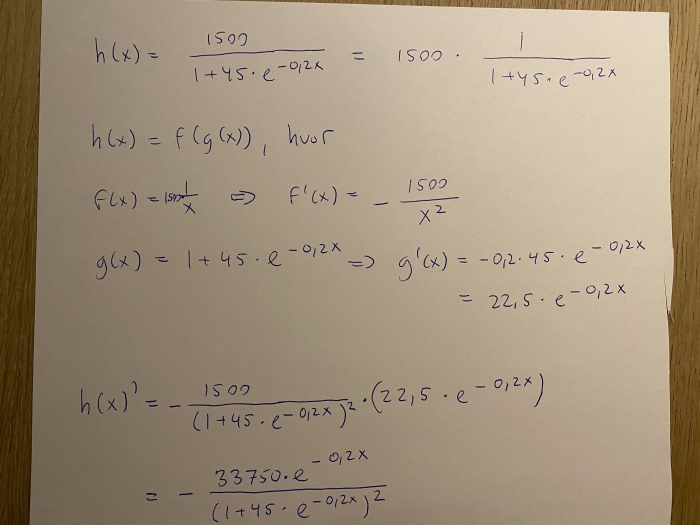 h(x) = 1500 / (1+45·e^(-0,2x)) = 1500 · 1 / (1+45·e^(-0,2x))
h(x) = f(g(x)), hvor
f(x) = 1500 1/x ⇒ f'(x) = - 1500 / x^2
g(x) = 1+45·e^(-0,2x) ⇒ g'(x) = -0,2·45·e^(-0,2x)
= 22,5·e^(-0,2x)
h(x)' = - 1500 / (1+45·e^(-0,2x))^2 · (22,5·e^(-0,2x))
= - 33750·e^(-0,2x) / (1+45·e^(-0,2x))^2